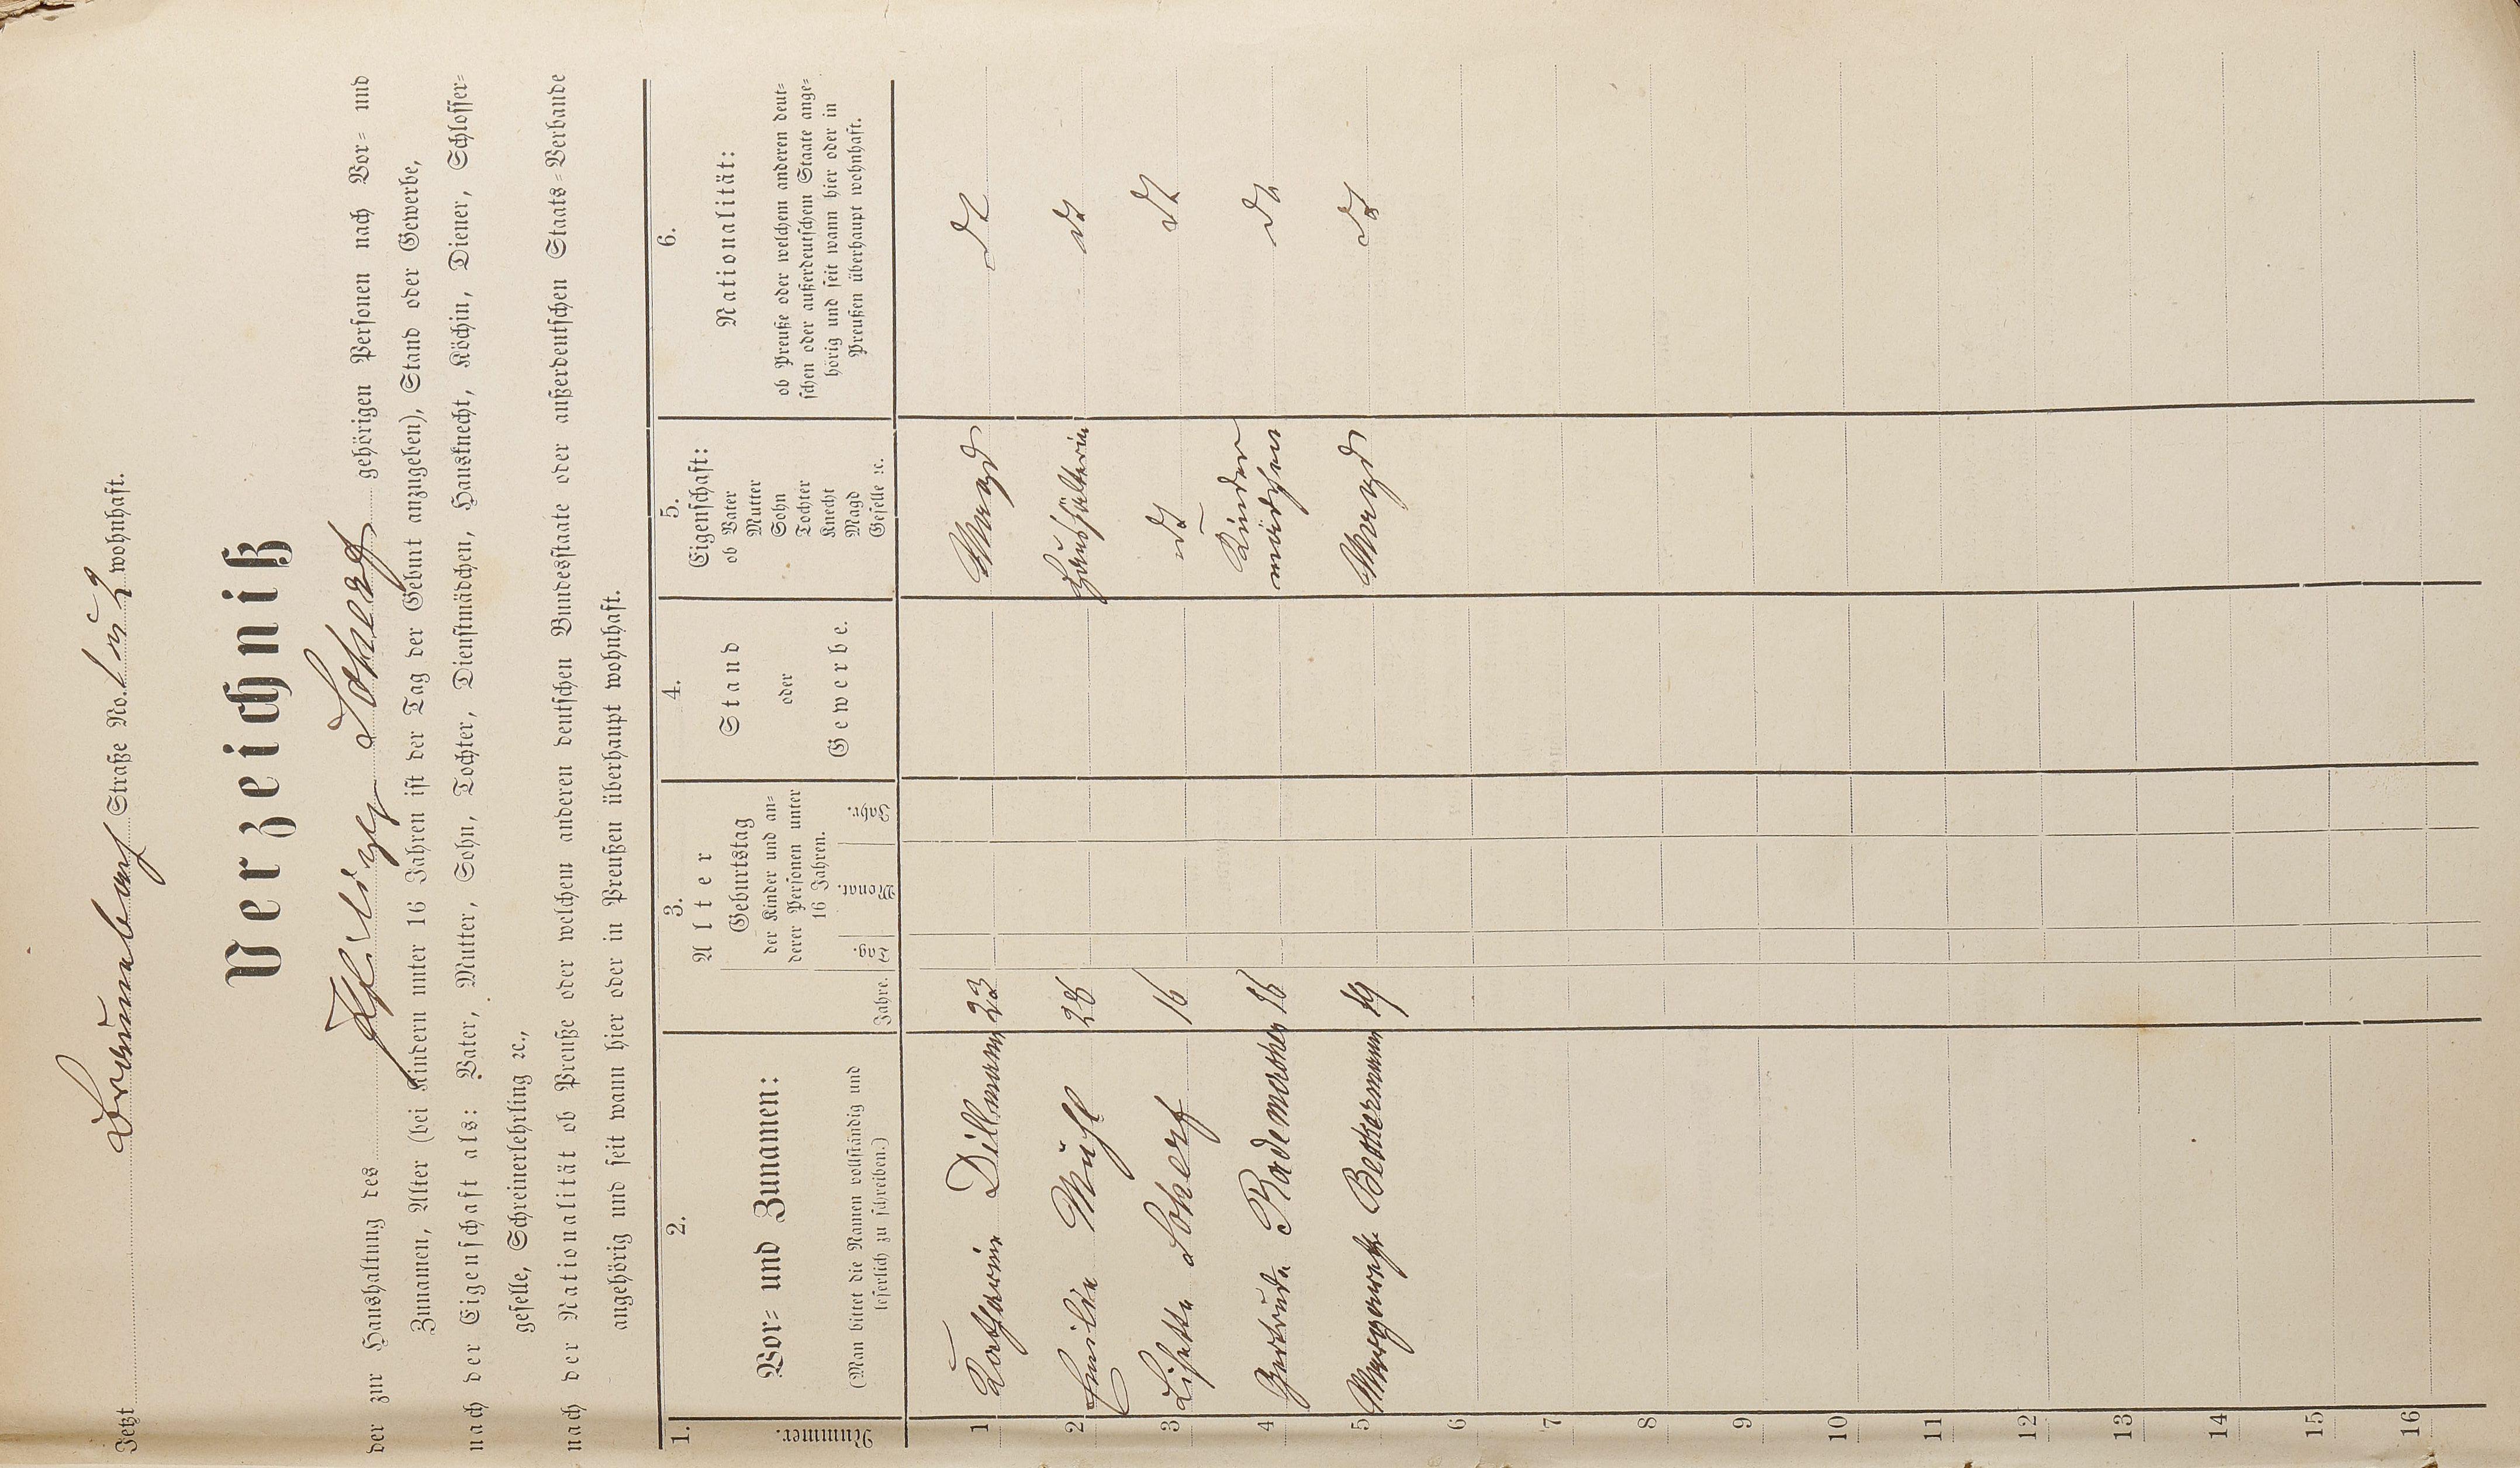 Jetzt Straße No. 1 u 2 wohnhaft.
Verzeichniß
der zur Haushaltung des gehörigen Personen nach Vor= und
Zunamen, Alter (bei Kindern unter 16 Jahren ist der Tag der Geburt anzugeben), Stand oder Gewerbe,
nach der Eigenschaft als: Vater, Mutter, Sohn, Tochter, Dienstmädchen, Hausknecht, Köchin, Diener, Schlosser=
geselle, Schreinerlehrling ꝛc.,
nach der Nationalität ob Preuße oder welchem anderen deutschen Bundesstaate oder außerdeutschen Staats=Verbande
angehörig und seit wann hier oder in Preußen überhaupt wohnhaft.
1.
Nummer.
2.
Vor= und Zunamen:
(Man bittet die Namen vollständig und
leserlich zu schreiben.)
3.
Alter
Jahre.
Geburtstag
der Kinder und an=
derer Personen unter
16 Jahren.
Tag. Monat. Jahr.
4.
Stand
oder
Gewerbe.
5.
Eigenschaft:
ob Vater
Mutter
Sohn
Tochter
Knecht
Magd
Geselle ꝛc.
6.
Nationalität:
ob Preuße oder welchem anderen deut=
schen oder außerdeutschem Staate ange=
hörig und seit wann hier oder in
Preußen überhaupt wohnhaft.
1 Catharine Dillmann 23 Magd
2 Emilie Mühl 28 Haushälterin
3 Lisette 16 do
4 Gertrude Rademacher 36 Kinder
mädchen
5 Margarethe Beckermann 19 Magd
6
7
8
9
10
11
12
13
14
15
16